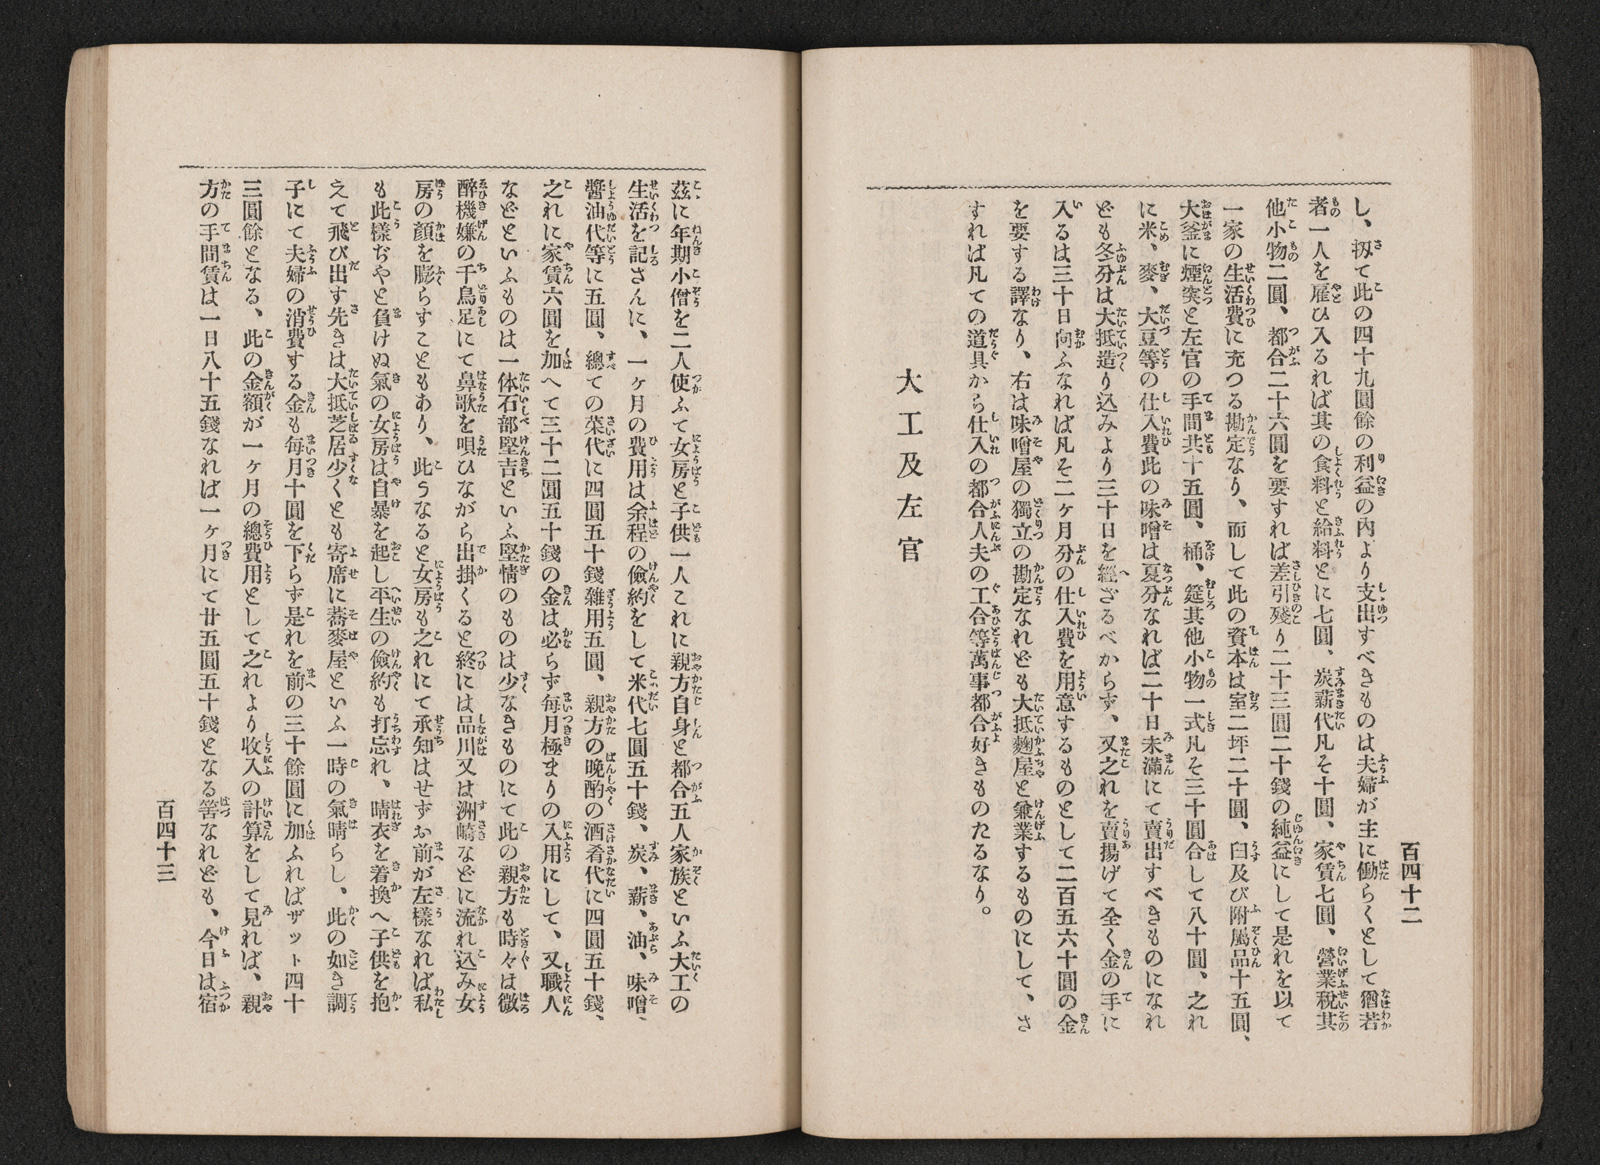 百四十二
し、扨て此の四十九圓餘の利益の內より支出すべきものは夫婦が主に働らくとして猶若
者一人を雇ひ入るれば其の食料と給料とに七圓、炭薪代凡そ十圓、家賃七圓、營業稅其
他小物二圓、都合二十六圓を要すれば差引殘り二十三圓二十錢の純益にして是れを以て
一家の生活費に充つる勘定なり、而して此の資本は室二坪二十圓、臼及び附屬品十五圓、
大釜に煙突と左官の手間共十五圓、桶、筵其他小物一式凡そ三十圓合して八十圓、之れ
に米、麥、大豆等の仕入費此の味噌は夏分なれば二十日未滿にて賣出すべきものになれ
ども冬分は大抵造り込みより三十日を經ざるべからず、又之れを賣揚げて全く金の手に
入るは三十日向ふなれば凡そ二ヶ月分の仕入費を用意するものとして二百五六十圓の金
を要する譯なり、右は味噌屋の獨立の勘定なれども大抵麴屋と兼業するものにして、さ
すれば凡ての道具から仕入の都合人夫の工合等萬事都合好きものたるなり。
大工及左官
玆に年期小僧を二人使ふて女房と子供一人これに親方自身と都合五人家族といふ大工の
生活を記さんに、一ヶ月の費用は余程の儉約をして米代七圓五十錢、炭、薪、油、味噌、
醬油代等に五圓、總ての菜代に四圓五十錢雜用五圓、親方の晚酌の酒肴代に四圓五十錢、
之れに家賃六圓を加へて三十二圓五十錢の金は必らず每月極まりの入用にして、又職人
などといふものは一体石部堅吉といふ堅情のものは少なきものにて此の親方も時々は微
醉機嫌の千鳥足にて鼻歌を唄ひながら出掛くると終には品川又は洲崎などに流れ込み女
房の顏を膨らすこともあり、此うなると女房も之れにて承知はせずお前が左樣なれば私
も此樣ぢやと負けぬ氣の女房は自暴を起し平生の儉約も打忘れ、晴衣を着換へ子供を抱
えて飛び出す先きは大抵芝居少くとも寄席に蕎麥屋といふ一時の氣晴らし、此の如き調
子にて夫婦の消費する金も每月十圓を下らず是れを前の三十餘圓に加ふればザット四十
三圓餘となる、此の金額が一ヶ月の總費用として之れより收入の計算をして見れば、親
方の手間賃は一日八十五錢なれば一ヶ月にて廿五圓五十錢となる筈なれども、今日は宿
百四十三